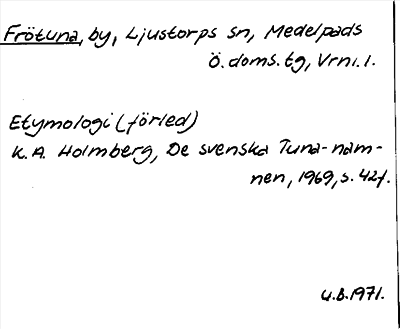 Frötuna, by, Ljustorps sn, Medelpads
Ö. doms. tg, Vrnl. 1.
Etymologi (förled)
K.A. Holmberg, De svenska Tuna-nam-
nen, 1969, s. 42f.
U.B. 1971.